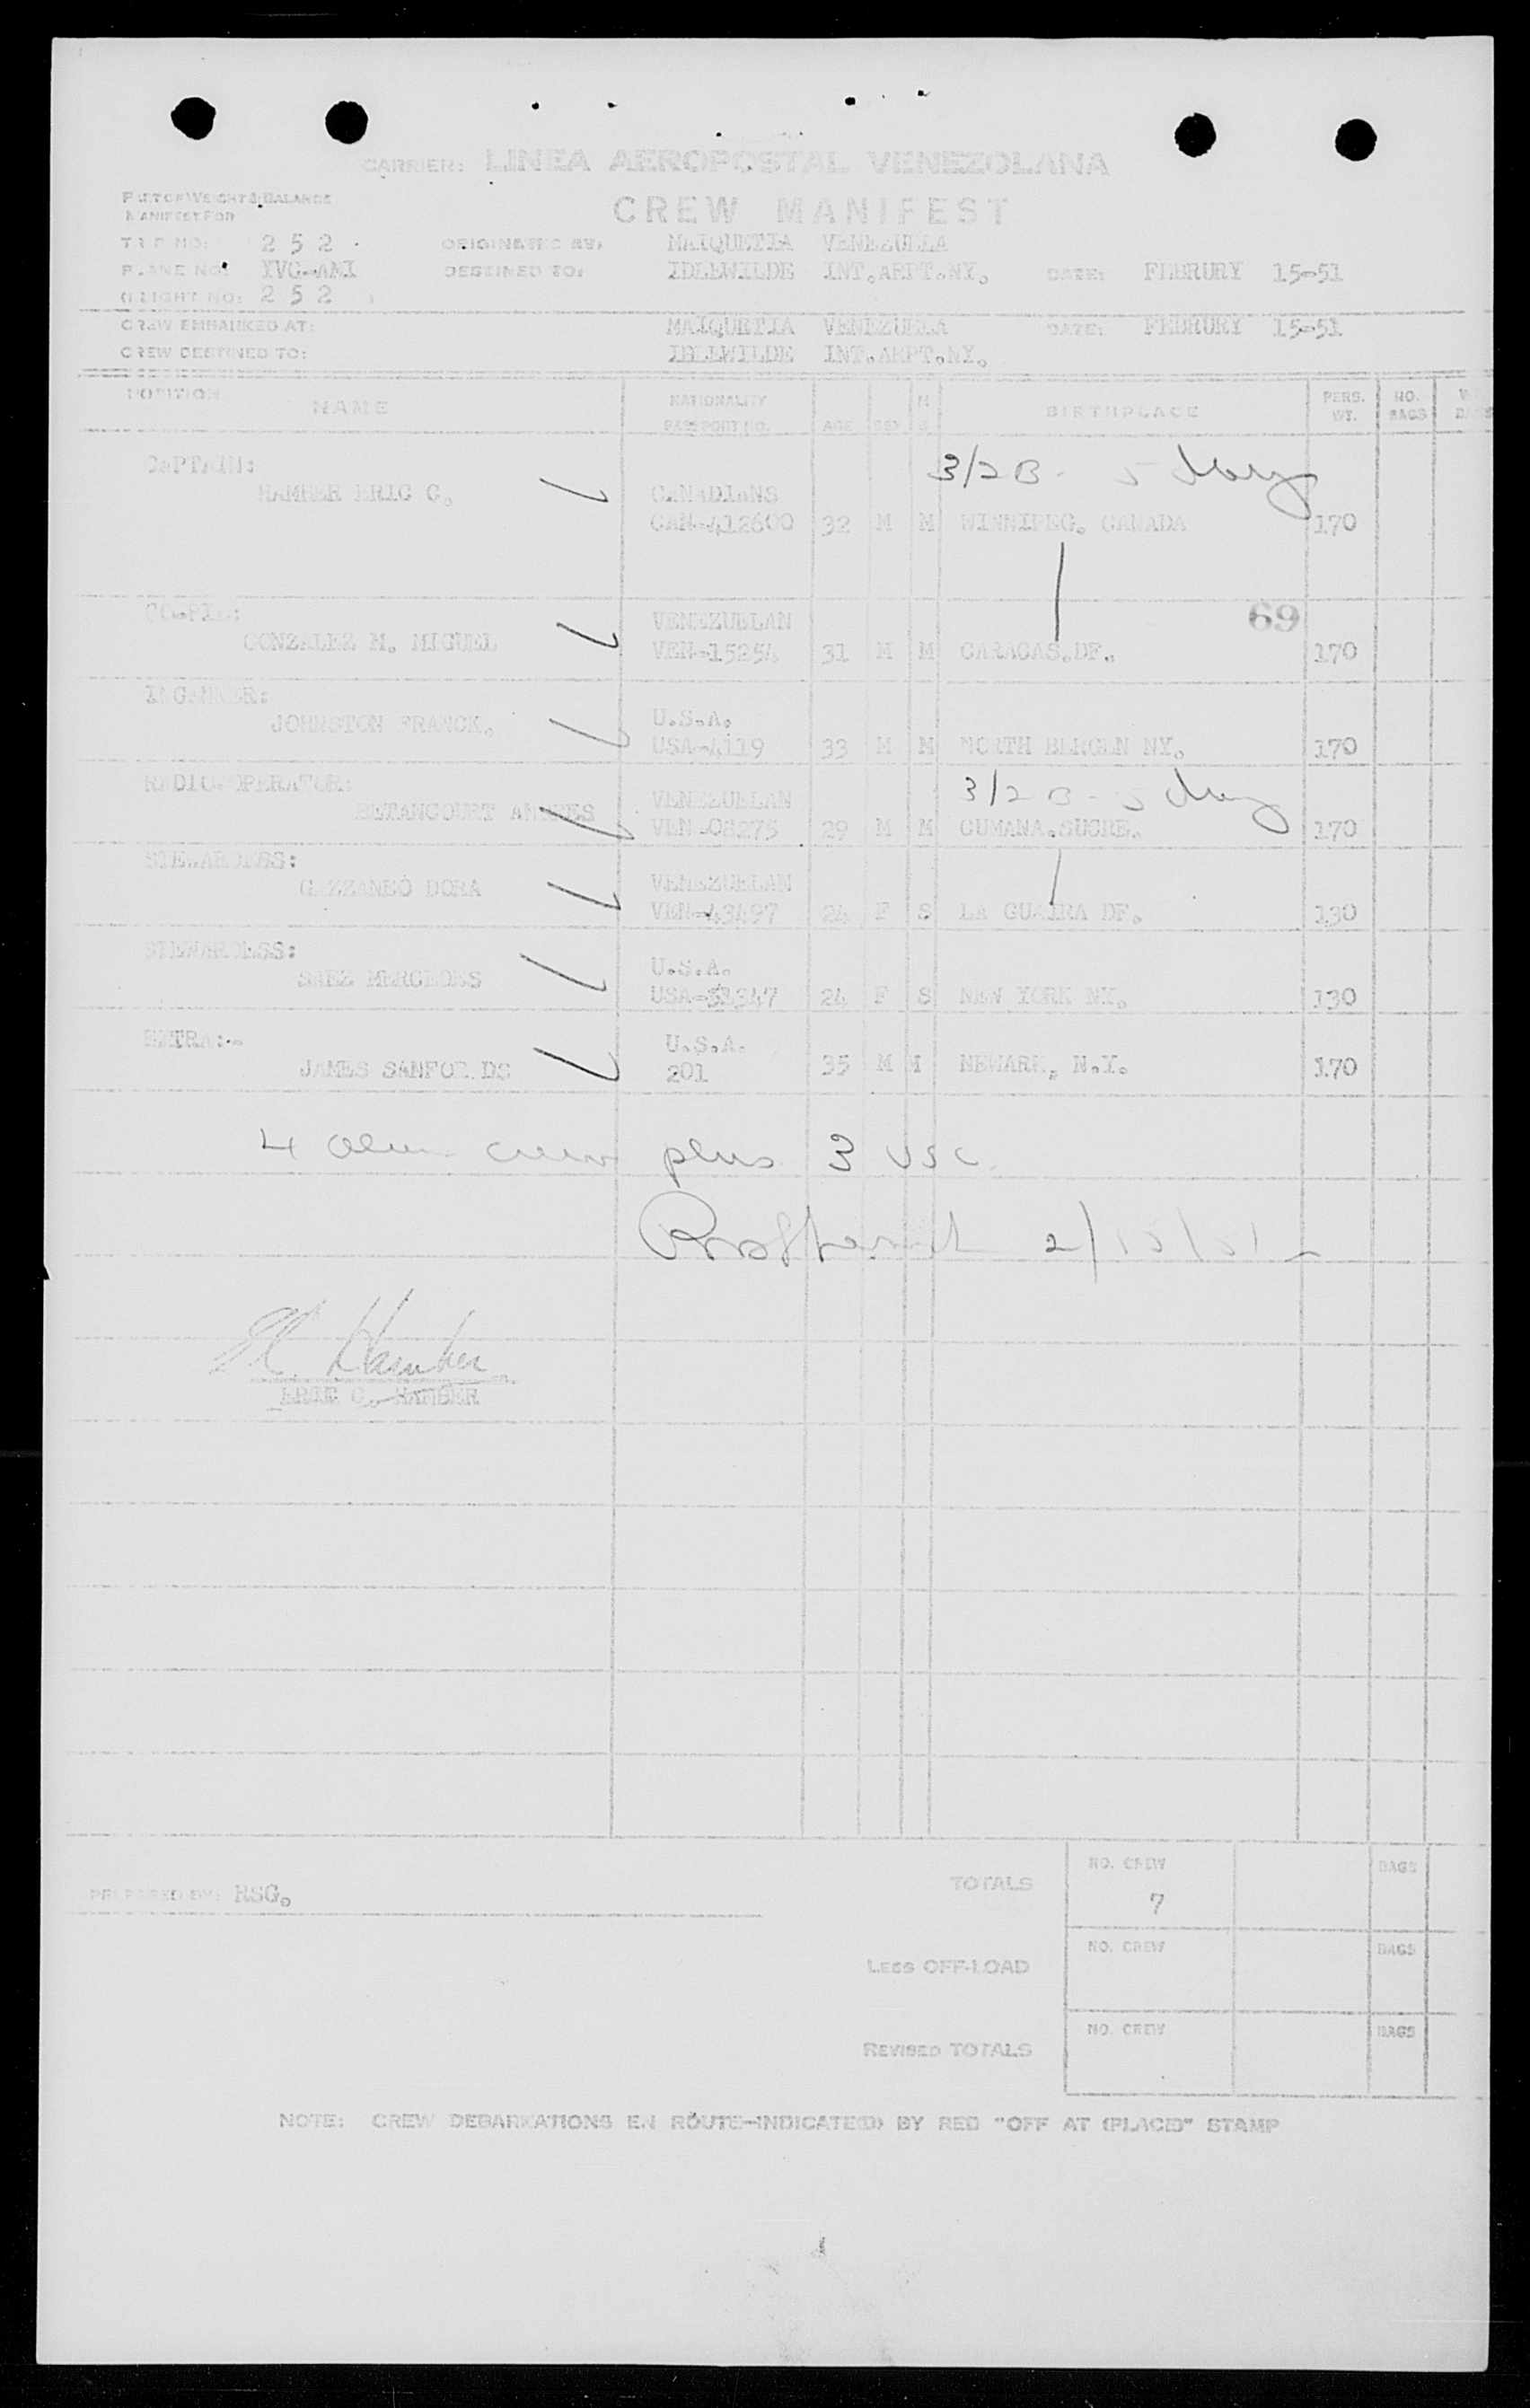 CARRIER: LINEA AEROPOSTAL VENEZOLANA
PART OF WEIGHT & BALANCE
MANIFEST FOR
CREW MANIFEST
TRIP NO: 2 5 2 ORIGINATED AT: MAIQUETIA VENEZUELA
PLANE NO: YVC-AMI DESTINED TO: IDLEWILDE INT.ARPT.NY. DATE: FEBRURY 15-51
FLIGHT NO: 2 5 2
CREW EMBARKED AT: MAIQUETIA VENEZUELA DATE: FEBRURY 15-51
CREW DESTINED TO: IDLEWILDE INT.ARPT.NY.
POSITION NAME NATIONALITY PASSPORT NO. AGE SEX M S BIRTHPLACE PERS. WT. NO. BAGS
CAPTAIN: 3/2 B - 5 day
HAMBER ERIC C. CANADIANS
CAN-412600 32 M M WINNIPEG. CANADA 170
69
VENEZUELAN
GONZALEZ M. MIGUEL VEN-15254 31 M M CARACAS.DF. 170
JOHNSTON FRANCK. U.S.A.
USA-4119 33 M M NORTH BERGEN NY. 170
RADIO-OPERATOR: 3/2 B - 5 day
BETANCOURT VENEZUELAN
VEN-08275 29 M M CUMANA.SUCRE. 170
STEWARDESS: VENEZUELAN
DORA VEN-43497 24 F S LA GUAIRA DF. 130
STEWARDESS: U.S.A.
SAEZ MERCEDES 24 F S NEW YORK NY. 130
EXTRA:- U.S.A.
JAMES SANFOR DS 201 35 M M NEWARK, N.Y. 170
4 alien crew plus 3 USC.
2/15/51
E C. Hamber
ERIC C. HAMBER
PREPARED BY: RSG.
TOTALS NO. CREW 7 BAGS
LESS OFF-LOAD NO. CREW BAGS
REVISED TOTALS NO. CREW BAGS
NOTE: CREW DEBARKATIONS EN ROUTE-INDICATE(D) BY RED "OFF AT (PLACE)" STAMP